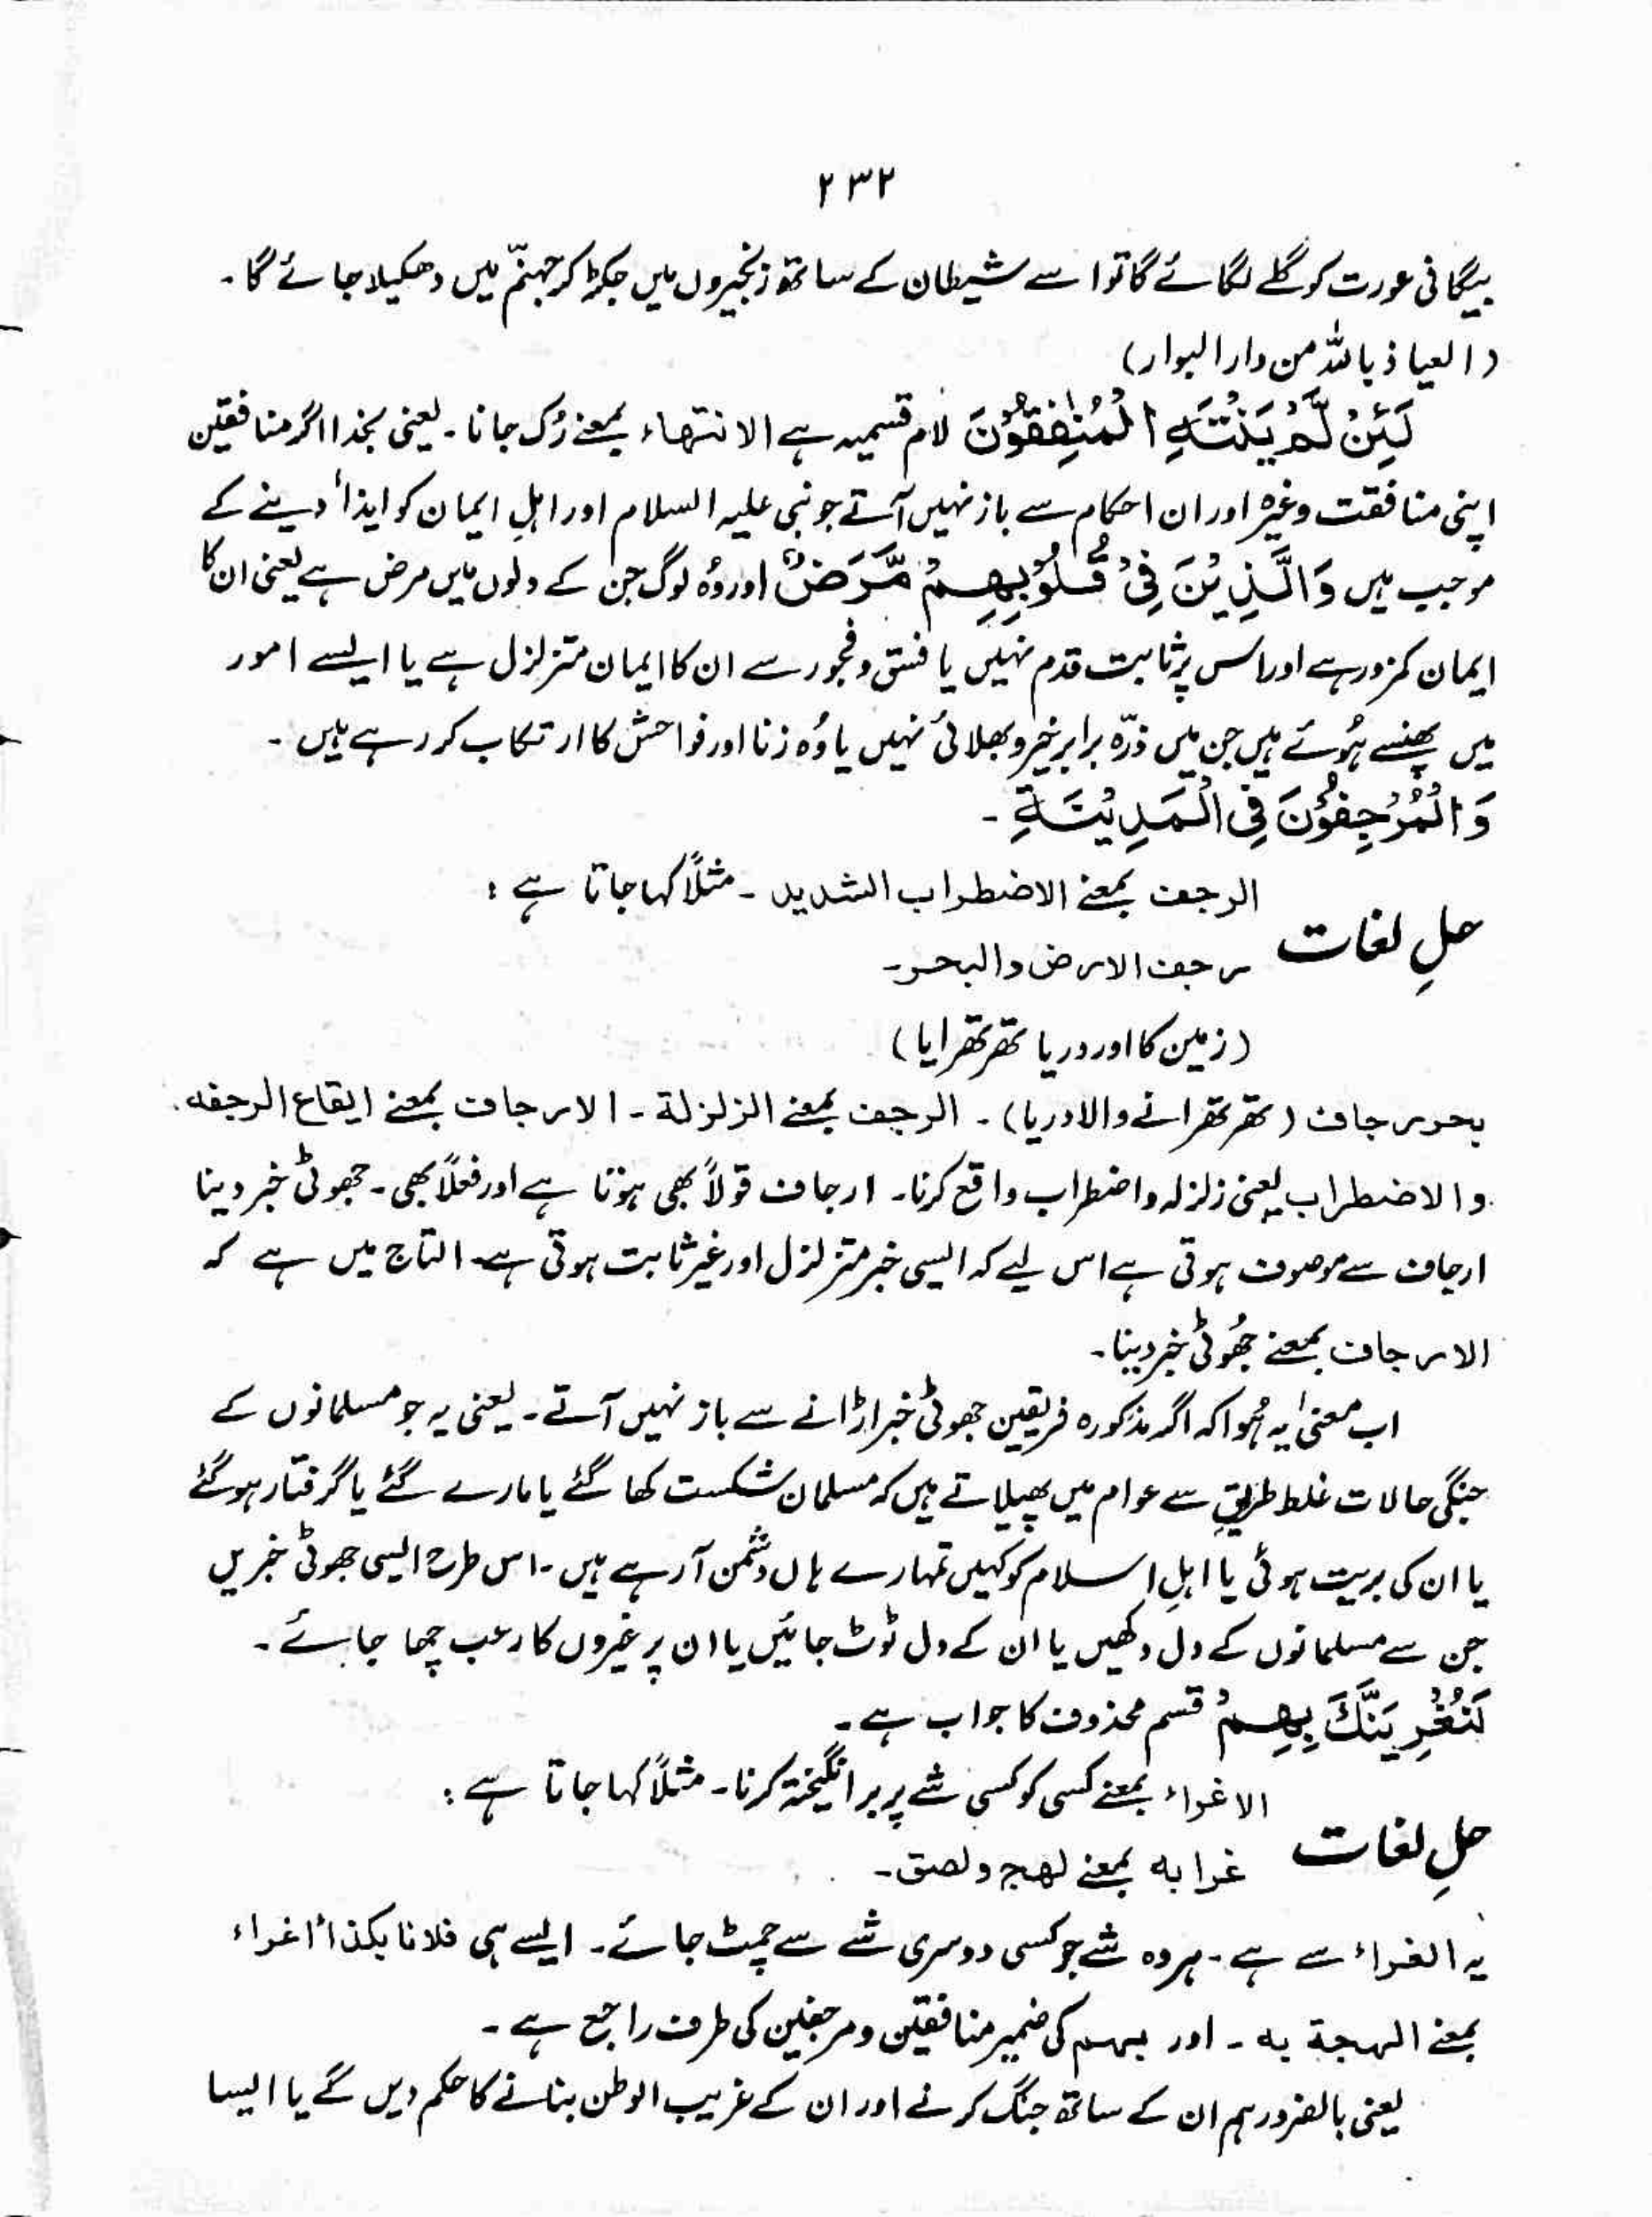 ۲۳۲
بیگانی عورت کو گلے لگائے گا تو اسے شیطان کے ساتھ زنجیروں میں جکڑ کر جہنّم میں دھکیلا جائے گا۔
(العیاذ باللہ من دار البوار)
لَئِنْ لَّمْ یَنْتَہِ الْمُنٰفِقُوْنَ لام قسمیہ ہے الانتہاء بمعنے رُک جانا۔ یعنی بخدا اگر منافقین
اپنی منافقت وغیرہ اور ان احکام سے باز نہیں آتے جو نبی علیہ السلام اور اہلِ ایمان کو ایذأ دینے کے
موجب ہیں وَالَّذِیْنَ فِیْ قُلُوْبِہِمْ مَّرَضٌ اور وُہ لوگ جن کے دلوں میں مرض ہے یعنی ان کا
ایمان کمزور ہے اور اس پر ثابت قدم نہیں یا فسق و فجور سے ان کا ایمان متزلزل ہے یا ایسے امور
میں پھنسے ہُوئے ہیں جن میں ذرّہ برابر خیر و بھلائی نہیں یا وُہ زنا اور فواحش کا ارتکاب کر رہے ہیں۔
وَالْمُرْجِفُوْنَ فِی الْمَدِیْنَۃِ۔
الرجف بمعنے الاضطراب الشدید۔ مثلاً کہا جاتا ہے :
حلِ لغات
رجف الارض والبحر۔
(زمین کا اور دریا تھرتھرایا)
بحر رجاف (تھرتھرانے والا دریا)۔ الرجف بمعنے الزلزلۃ۔ الارجاف بمعنے ایقاع الرجفہ
والاضطراب یعنی زلزلہ و اضطراب واقع کرنا۔ ارجاف قولاً بھی ہوتا ہے اور فعلاً بھی۔ جھوٹی خبر دینا
ارجاف سے موصوف ہوتی ہے اس لیے کہ ایسی خبر متزلزل اور غیر ثابت ہوتی ہے۔ التاج میں ہے کہ
الارجاف بمعنے جُھوٹی خبر دینا۔
اب معنیٰ یہ ہُوا کہ اگر مذکورہ فریقین جھوٹی خبر اڑانے سے باز نہیں آتے۔ یعنی یہ جو مسلمانوں کے
جنگی حالات غلط طریقِ سے عوام میں پھیلاتے ہیں کہ مسلمان شکست کھا گئے یا مارے گئے یا گرفتار ہو گئے
یا ان کی بریت ہوئی یا اہلِ اسلام کو کہیں تمہارے ہاں دشمن آ رہے ہیں۔ اس طرح ایسی جھوٹی خبریں
جن سے مسلمانوں کے دل دکھیں یا ان کے دل ٹوٹ جائیں یا ان پر غیروں کا رعب چھا جائے۔
لَنُغْرِیَنَّکَ بِہِمْ قسم محذوف کا جواب ہے۔
الاغراء بمعنے کسی کو کسی شے پر برانگیختہ کرنا۔ مثلاً کہا جاتا ہے :
حلِ لغات
غرا بہ بمعنے لھج و لصق۔
یہ الغراء سے ہے۔ ہر وہ شے جو کسی دوسری شے سے چمٹ جائے۔ ایسے ہی فلانا بکذا أغراء
بمعنے الہجۃ بہ۔ اور بہم کی ضمیر منافقین و مرجفین کی طرف راجع ہے۔
یعنی بالضرور ہم ان کے ساتھ جنگ کرنے اور ان کے غریب الوطن بنانے کا حکم دیں گے یا ایسا